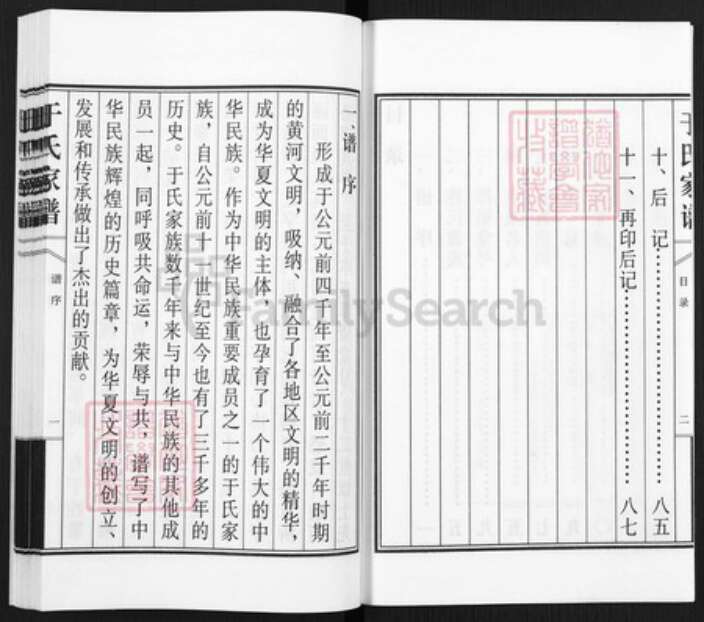 于氏家谱
目录
二
十、后记……八五
十一、再印后记……八七
一、谱序
形成于公元前四千年至公元前二千年时期
的黄河文明，吸纳、融合了各地区文明的精华，
成为华夏文明的主体，也孕育了一个伟大的中
华民族。作为中华民族重要成员之一的于氏家
族，自公元前十一世纪至今也有了三千多年的
历史。于氏家族数千年来与中华民族的其他成
员一起，同呼吸共命运，荣辱与共，谱写了中
华民族辉煌的历史篇章，为华夏文明的创立、
发展和传承做出了杰出的贡献。
于氏家谱
谱序
一
FamilySearch